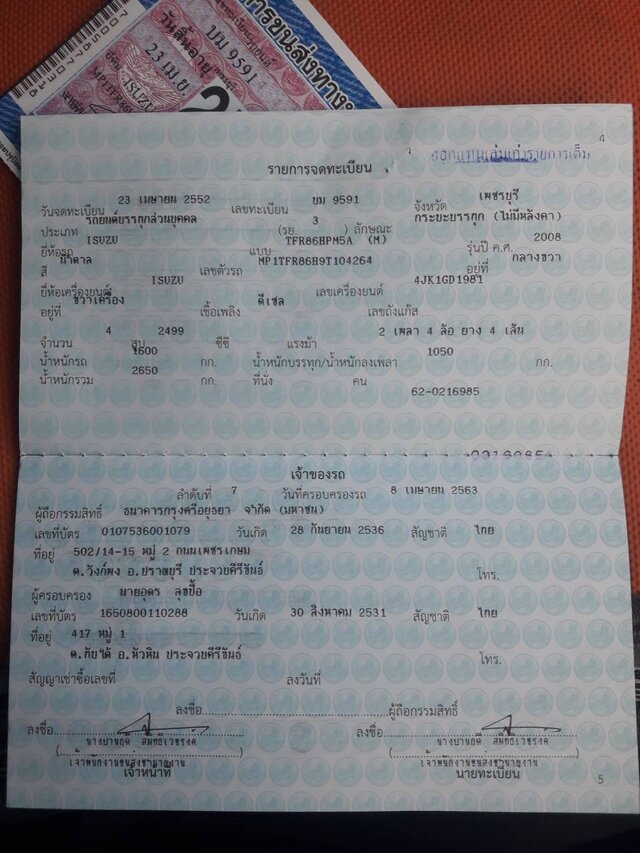 การขนส่งทางบ
บม 9591
วันสิ้นอายุ
23 เม.ย.
ISUZU
4
ออกแทนเล่มเก่ารายการเต็ม
รายการจดทะเบียน
วันจดทะเบียน 23 เมษายน 2552 เลขทะเบียน บม 9591 จังหวัด เพชรบุรี
ประเภท รถยนต์บรรทุกส่วนบุคคล (รย. 3 ) ลักษณะ กระบะบรรทุก (ไม่มีหลังคา)
ยี่ห้อรถ ISUZU แบบ TFR86HPM5A (M) รุ่นปี ค.ศ. 2008
สี น้ำตาล เลขตัวรถ MP1TFR86H9T104264 อยู่ที่ กลางขวา
ยี่ห้อเครื่องยนต์ ISUZU เลขเครื่องยนต์ 4JK1GD1981
อยู่ที่ ขวาเครื่อง เชื้อเพลิง ดีเซล เลขถังแก๊ส
จำนวน 4 สูบ 2499 ซีซี แรงม้า 2 เพลา 4 ล้อ ยาง 4 เส้น
น้ำหนักรถ 1600 กก. น้ำหนักบรรทุก/น้ำหนักลงเพลา 1050 กก.
น้ำหนักรวม 2650 กก. ที่นั่ง คน
62-0216985
เจ้าของรถ
ลำดับที่ 7 วันที่ครอบครองรถ 8 เมษายน 2563
ผู้ถือกรรมสิทธิ์ ธนาคารกรุงศรีอยุธยา จำกัด (มหาชน)
เลขที่บัตร 0107536001079 วันเกิด 28 กันยายน 2536 สัญชาติ ไทย
ที่อยู่ 502/14-15 หมู่ 2 ถนนเพชรเกษม
ต.วังก์พง อ.ปราณบุรี ประจวบคีรีขันธ์ โทร.
ผู้ครอบครอง นายอุดร สุขปื้อ
เลขที่บัตร 1650800110288 วันเกิด 30 สิงหาคม 2531 สัญชาติ ไทย
ที่อยู่ 417 หมู่ 1
ต.ทับใต้ อ.หัวหิน ประจวบคีรีขันธ์ โทร.
สัญญาเช่าซื้อเลขที่ ลงวันที่
ลงชื่อ ผู้ถือกรรมสิทธิ์
ลงชื่อ ลงชื่อ
เจ้าพนักงานขนส่งชำนาญงาน เจ้าพนักงานขนส่งชำนาญงาน
เจ้าหน้าที่ นายทะเบียน
5